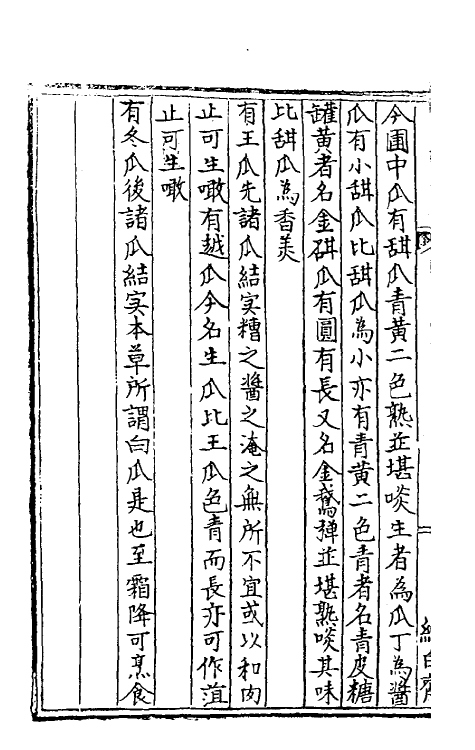 今圃中瓜有甜瓜青黃二色熟並堪啖生者為瓜丁為醬
瓜有小甜瓜比甜瓜為小亦有青黃二色青者名青皮糖
罐黃者名金甜瓜有圓有長又名金鵞彈並堪熟啖其味
比甜瓜為香美
有王瓜先諸瓜結实糟之醬之淹之無所不宜或以和肉
止可生噉有越瓜今名生瓜比王瓜色青而長亦可作菹
止可生噉
有冬瓜後諸瓜結实本草所謂白瓜是也至霜降可烹食